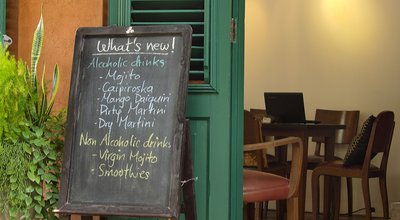 What's new!
Alcoholic drinks
- Mojito
- Caipiroska
- Mango Daiquiri
- Dirty Martini
- Dry Martini
Non Alcoholic drinks
- Virgin Mojito
- Smoothies